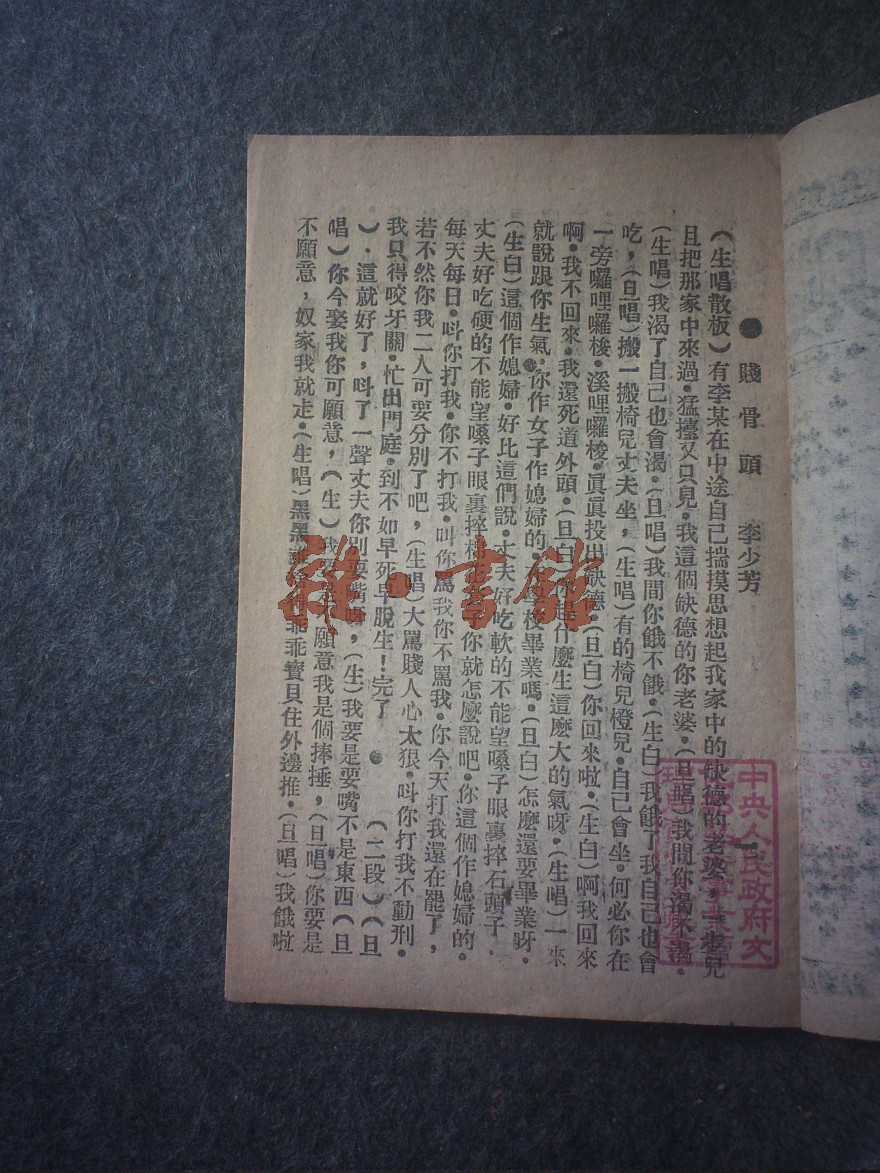 賤骨頭 李少芳
（生唱散板）有李某在中途自己揣摸思想起我家中的缺德的老婆
且把那家中來過·猛擡又只見·我這個缺德的你老婆·（旦唱）我問你渴不渴·
（生唱）我渴了自己也會渴·（旦唱）我間你餓不餓·（生白）我餓了我自己也會
吃，（旦唱）搬一搬椅兒丈夫坐，（生唱）有的椅兒橙兒·自己會坐·何必你在
一旁囉哩囉梭·溪哩囉梭·眞眞投出缺德·（旦白）你回來啦·（生白）啊我回來
啊·我不回來·我還死道外頭·（旦白）你起什麼生這麼大的氣呀·（生唱）一來
就說跟你生氣·你作女子作媳婦的·校畢業嗎·（旦白）怎麽還要畢業呀·
（生白）這個作媳婦·好比這們說·丈夫好吃軟的不能望嗓子眼裏摔石頭子·
丈夫好吃硬的不能望嗓子眼裏摔你就怎麽說吧·你這個作媳婦的·
每天每日·呌你打我·你不打我·叫你罵我你不罵我·你今天打我還在罷了，
若不然你我二人可要分別了吧，（生唱）大罵賤人心太狠·呌你打我不動刑·
我只得咬牙關·忙出門庭·到不如早死早脫生！完了 （二段）（旦
）·這就好了，呌了一聲丈夫你別耍嘴，（生）我要是耍嘴不是東西（旦
唱）你今娶我你可願意，（生）我願意我是個捧捶，（旦唱）你要是
不願意，奴家我就走·（生唱）黑黑乖乖寶貝住外邊推·（旦唱）我餓啦
中央人民政府文
雜·書館